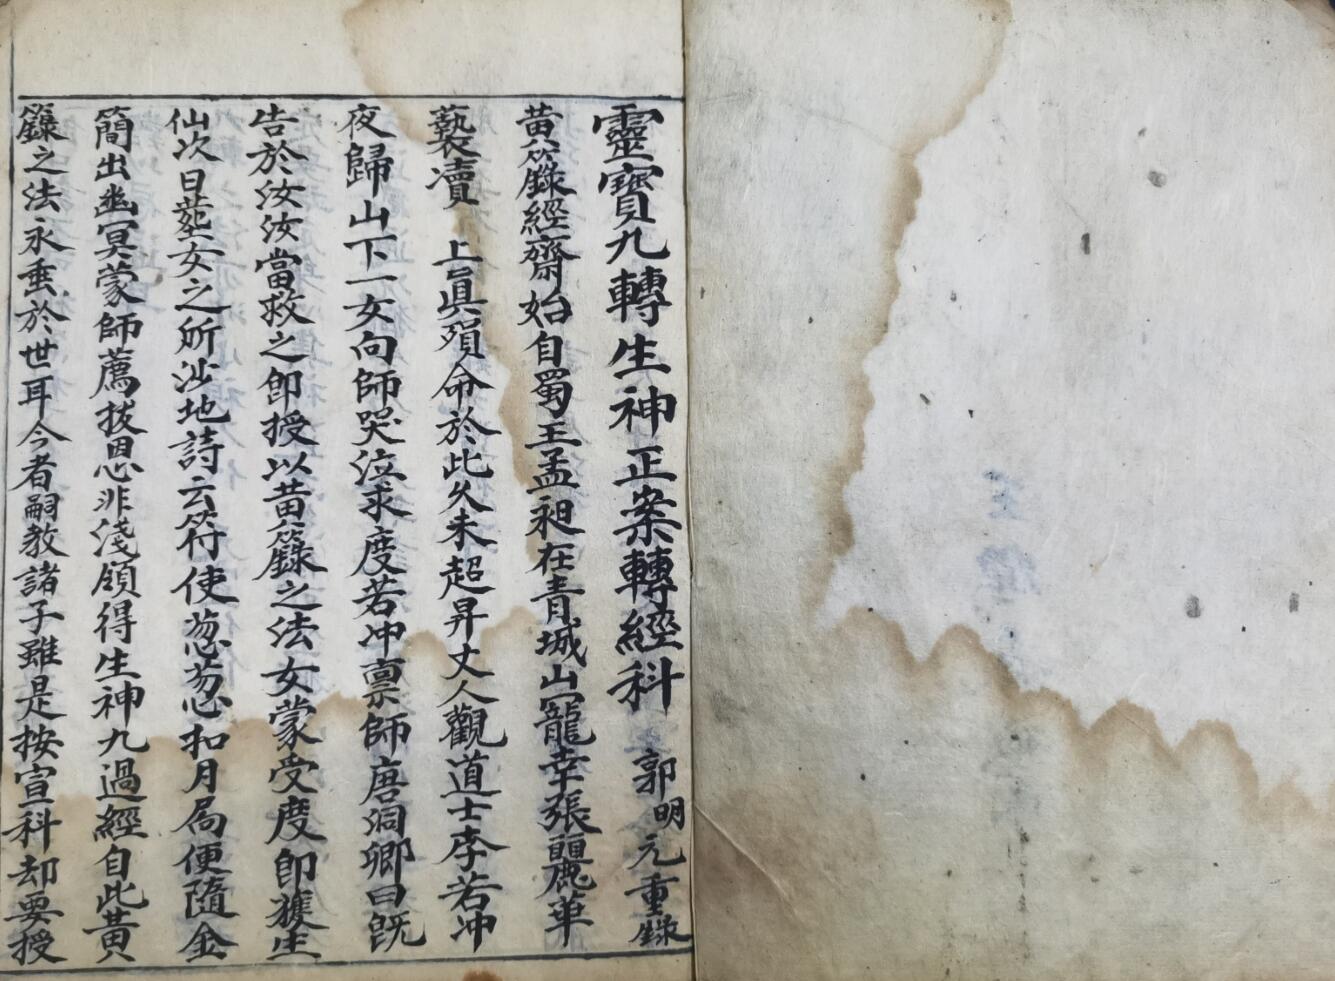 靈寶九轉生神正案轉經科 郭明元重錄
黄籙經齋始自蜀王孟昶在青城山寵幸張麗華
褻瀆 上眞殞命於此久未超昇丈人觀道士李若冲
夜歸山下一女向師哭泣求度若冲禀師唐洞卿曰既
告於汝汝當救之即授以黄籙之法女蒙受度即獲生
仙次日塟女之所沙地詩云符使怱怱扣月局便隨金
簡出幽冥蒙師薦拔恩非淺領得生神九過經自此黄
籙之法永垂於世耳今者嗣教諸子雖是按宣科却要授